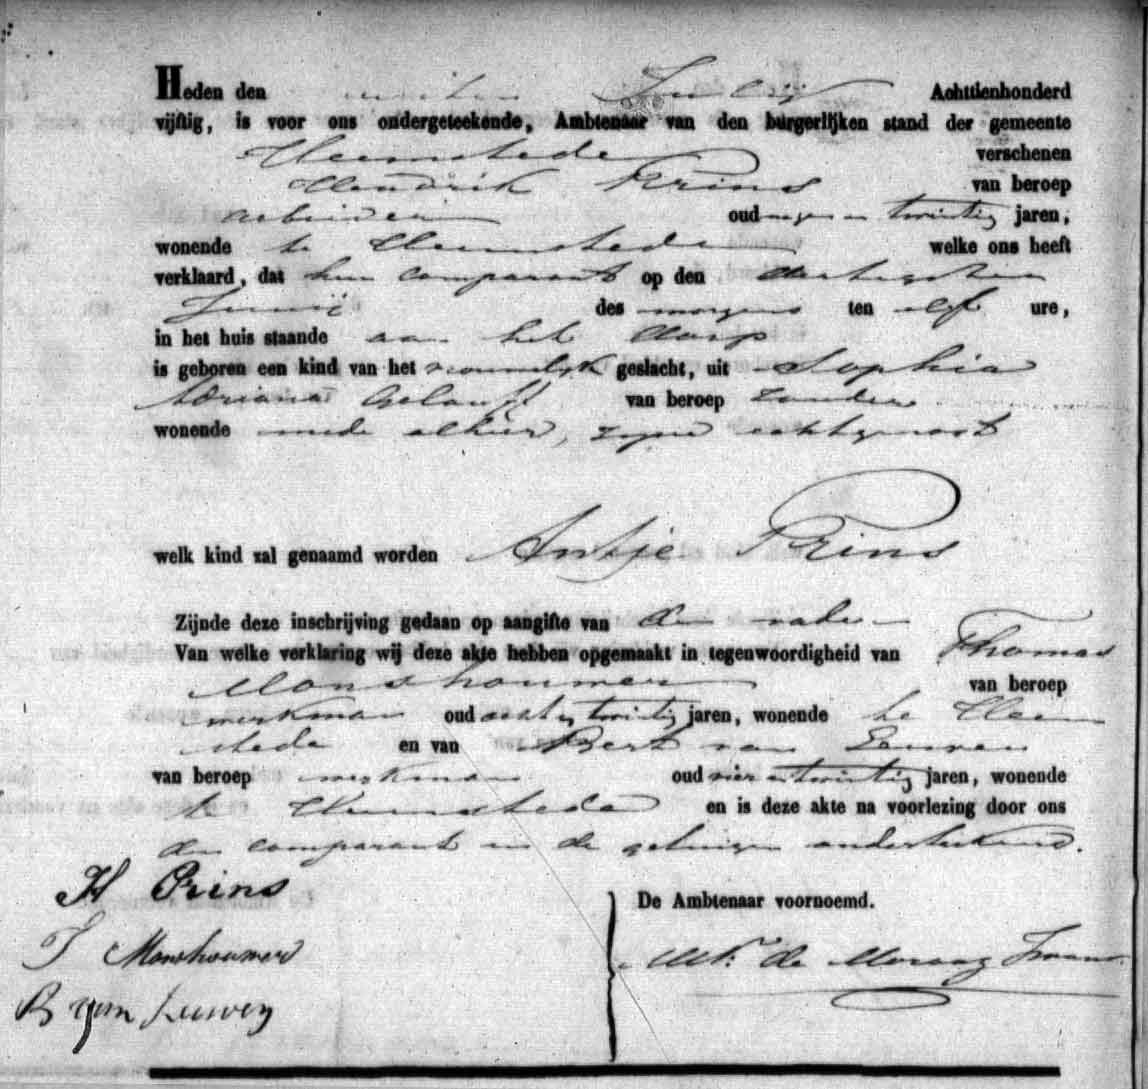 Heden den Julij Achttienhonderd
vijftig, is voor ons ondergeteekende, Ambtenaar van den burgerlijken stand der gemeente
Heemstede verschenen
Hendrik Prins van beroep
arbeider oud negen en twintig jaren,
wonende te Heemstede welke ons heeft
verklaard, dat hem comparant op den dertigsten
Junij des morgens ten elf ure,
in het huis staande aan het dorp
is geboren een kind van het vrouwelijk geslacht, uit Sophia
Adriana van beroep zonder
wonende mede alhier, zijne echtgenoot
welk kind zal genaamd worden Antje Prins
Zijnde deze inschrijving gedaan op aangifte van den vader
Van welke verklaring wij deze akte hebben opgemaakt in tegenwoordigheid van Thomas
Monshouwer van beroep
werkman oud acht en twintig jaren, wonende te Heem
stede en van Bert van Leuven
van beroep werkman oud vier en twintig jaren, wonende
te Heemstede en is deze akte na voorlezing door ons
den comparant en de getuigen onderteekend.
H Prins
De Ambtenaar voornoemd.
T Monshouwer
de
B van Leuven